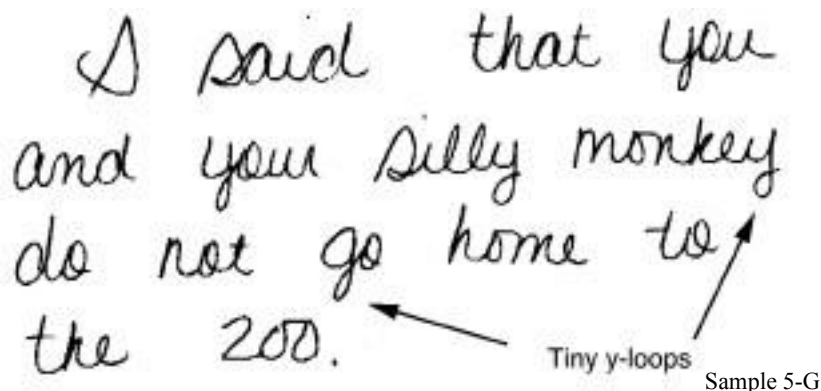 I said that you
and your silly monkey
do not go home to
the zoo.
Tiny y-loops
Sample 5-G